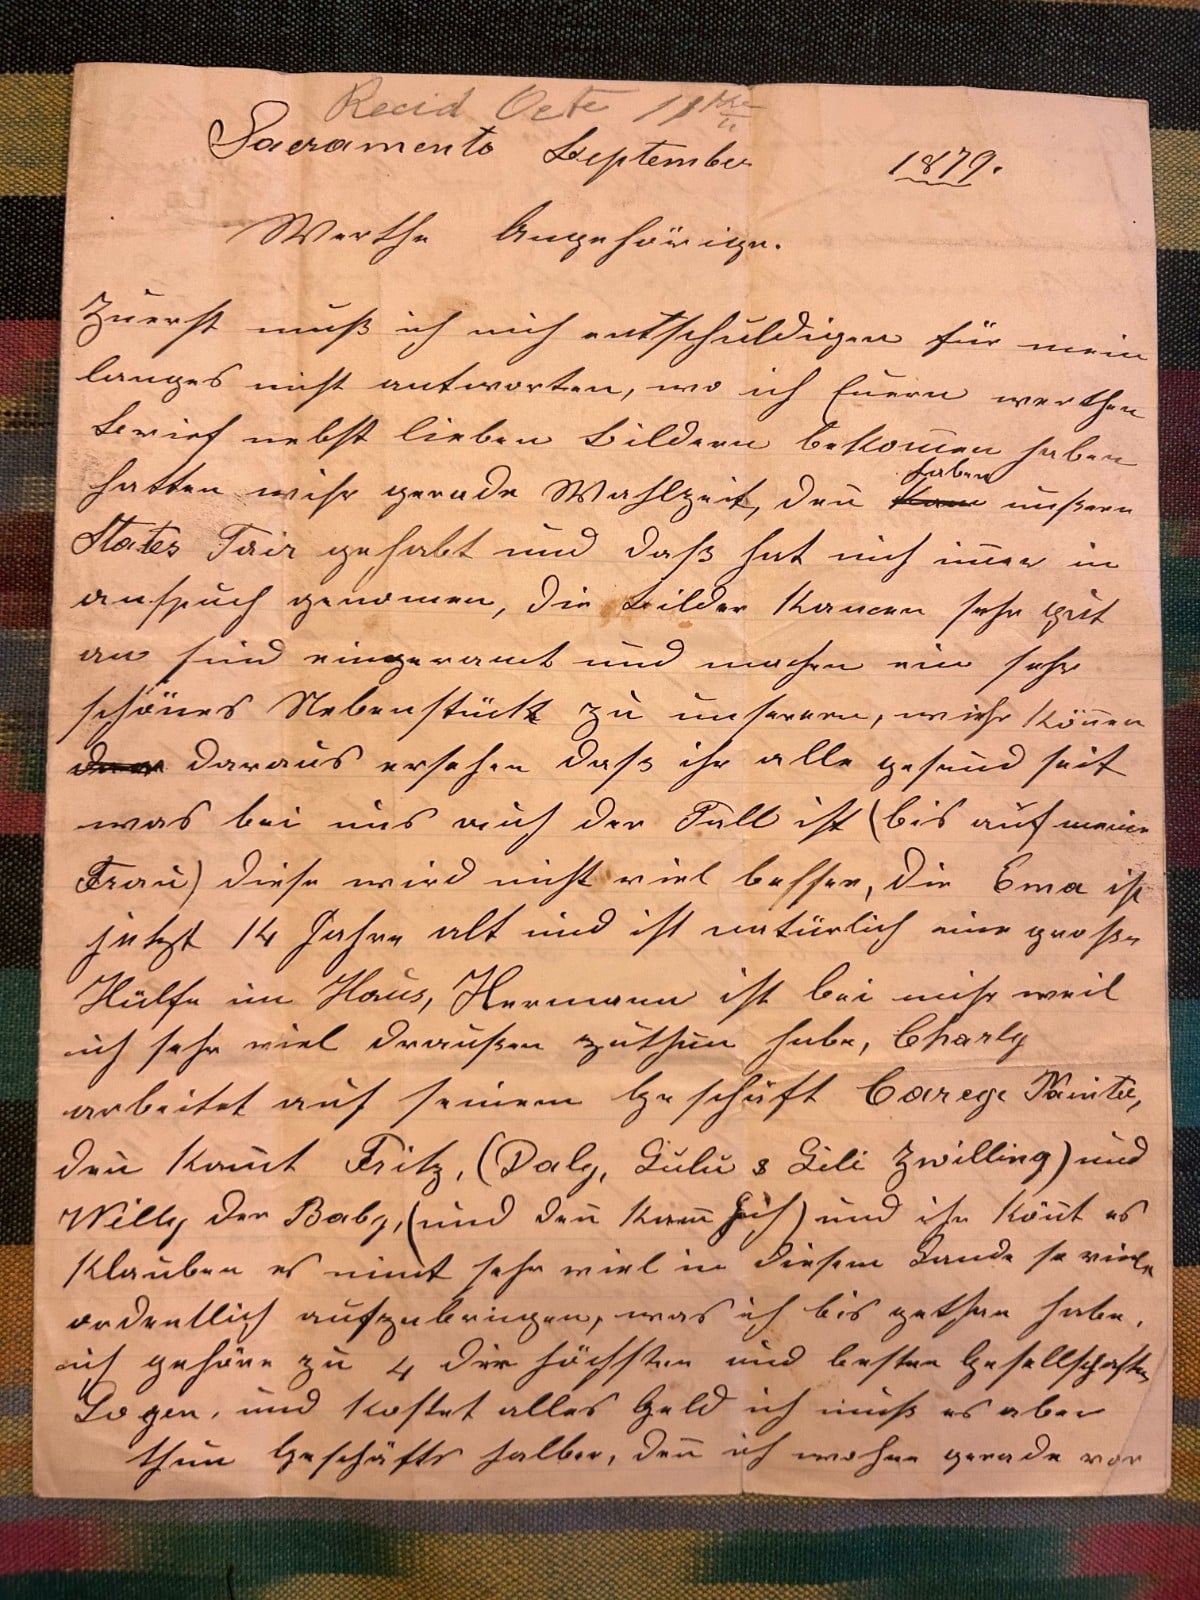 Recid Octr 18
Sacramento September 1879.
Werthe Angehörige.
Zuerst muß ich mich entschuldigen für mein
langes nicht antworten, wo ich Euern werthen
Brief nebst lieben Bildern bekom̄en haben
hatten wihr gerade Wahlzeit, den haben unßern
States Fair gehabt und daß hat mich im̄er in
anspuch genomen, die Bilder kamen sehr gut
an sind eingeramt und machen ein sehr
schönes Nebenstück zu unserem, wiehr kön̄en
daraus ersehen daß ihr alle gesund seit
was bei uns auch der Fall ist (bis auf meine
Frau) diese wird nicht viel besser, die Ema ist
jetzt 14 Jahre alt und ist natürlich eine große
Hülfe im Haus, Hermann ist bei mihr weil
ich sehr viel draußen zuthun habe, Charly
arbeitet auf seinem Geschäft Carege Painter,
den kom̄t Fritz, (Daly, Lulu & Lili Zwilling) und
Willy der Baby, (und den̄ kom̄ Ich) und ihr kön̄t es
Klauben es nimt sehr viel in diesem Lande so viele
ordentlich aufzubringen, was ich bis gethan habe,
ich gehöre zu 4 der höchsten und besten Gesellschaften
Logen, und kostet alles Geld ich muß es aber
thun Geschäfts halber, den̄ ich wohne gerade vor